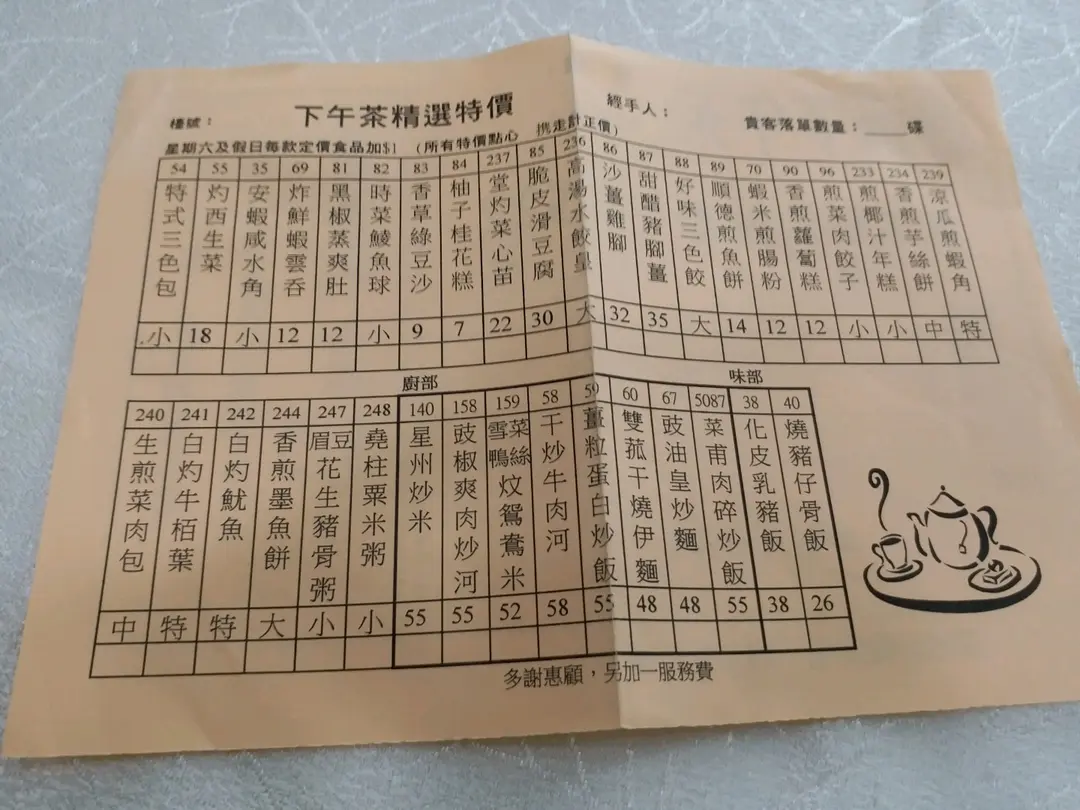 下午茶精選特價
樓號：
經手人：
貴客落單數量：____碟
星期六及假日每款定價食品加$1 (所有特價點心 携走計正價)
54 特式三色包 小
55 灼西生菜 18
35 安蝦咸水角 小
69 炸鮮蝦雲吞 12
81 黑椒蒸爽肚 12
82 時菜鯪魚球 小
83 香草綠豆沙 9
84 柚子桂花糕 7
237 堂灼菜心苗 22
85 脆皮滑豆腐 30
236 高湯水餃皇 大
86 沙薑雞腳 32
87 甜醋豬腳薑 35
88 好味三色餃 大
89 順德煎魚餅 14
70 蝦米煎腸粉 12
90 香煎蘿蔔糕 12
96 煎菜肉餃子 小
233 煎椰汁年糕 小
234 香煎芋絲餅 中
239 涼瓜煎蝦角 特
廚部
味部
240 生煎菜肉包 中
241 白灼牛栢葉 特
242 白灼魷魚 特
244 香煎墨魚餅 大
247 眉豆花生豬骨粥 小
248 堯柱粟米粥 小
140 星州炒米 55
158 豉椒爽肉炒河 55
159 雪菜鴨絲炆鴛鴦米 52
58 干炒牛肉河 58
59 薑粒蛋白炒飯 55
60 雙菰干燒伊麵 48
67 豉油皇炒麵 48
5087 菜甫肉碎炒飯 55
38 化皮乳豬飯 38
40 燒豬仔骨飯 26
多謝惠顧，另加一服務費